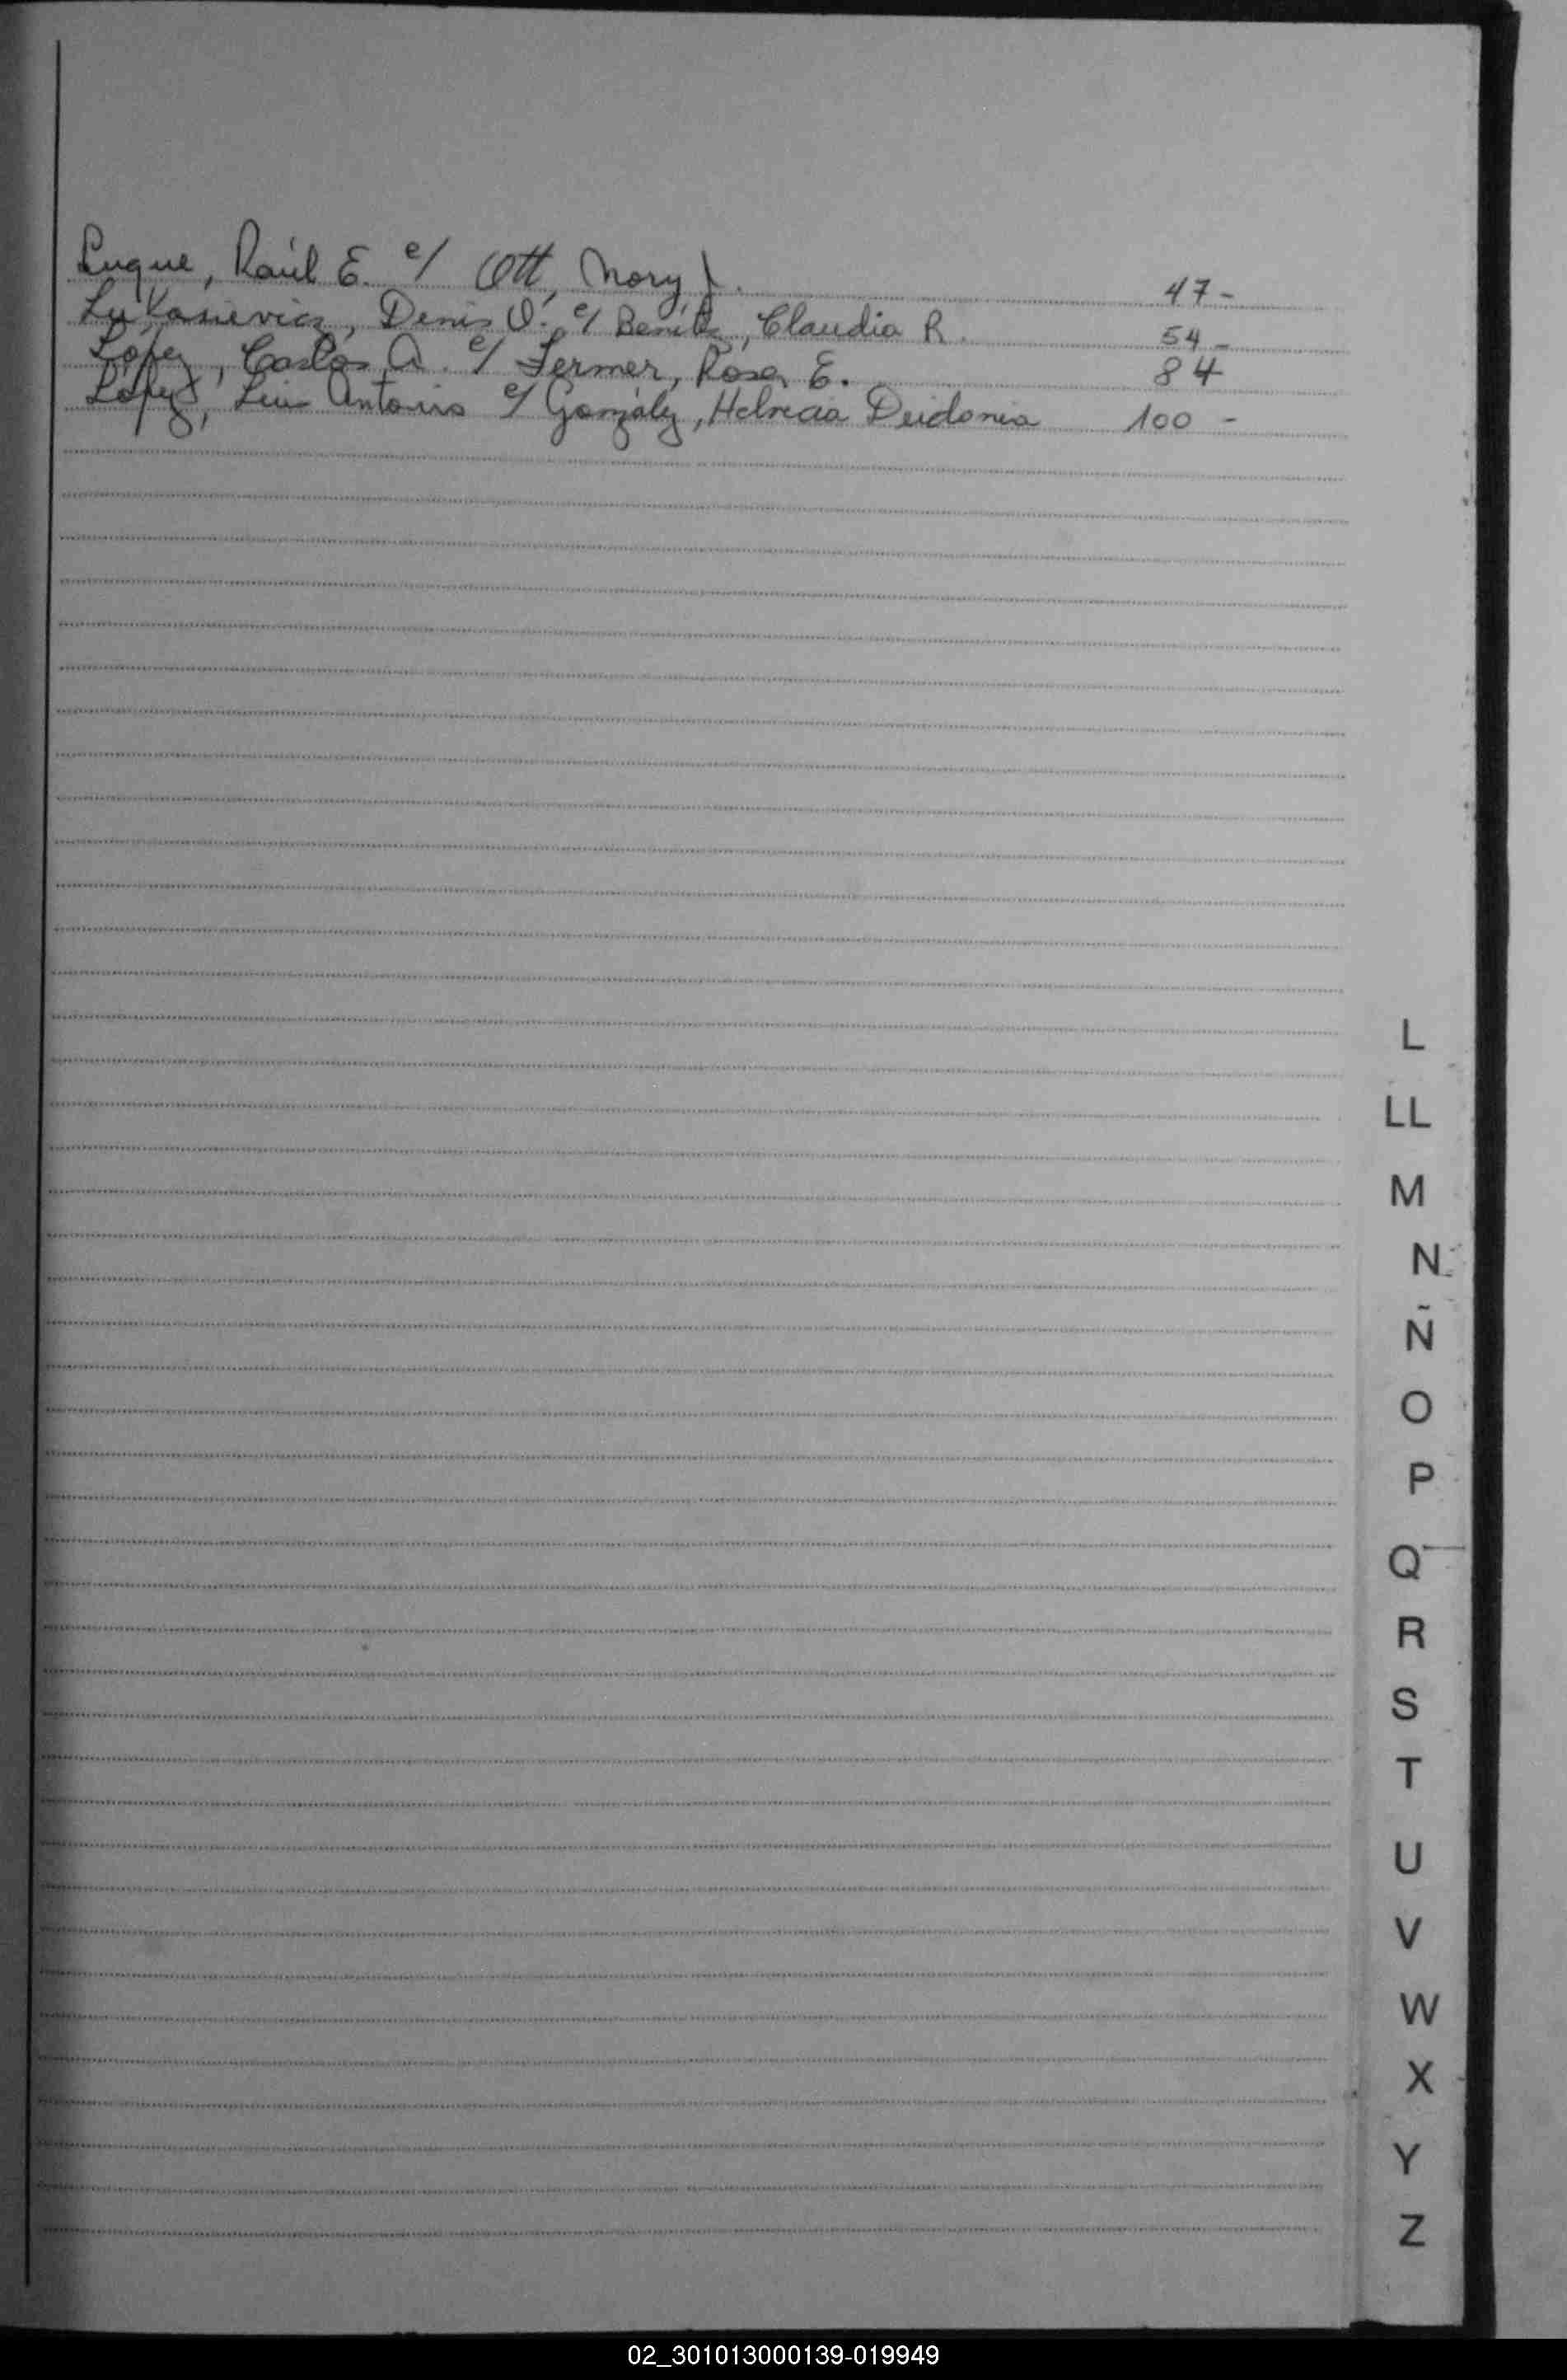 Luque, Raúl E. c/ Ott, Nory J. 47-
Lukasievicz, Denis O. c/ Benítez, Claudia R. 54-
López, Carlos A. c/ Fermer, Rosa E. 84
López, Luis Antonio c/ González, Helvecia Deidonia 100-
L
LL
M
N
Ñ
O
P
Q
R
S
T
U
V
W
X
Y
Z
02_301013000139-019949